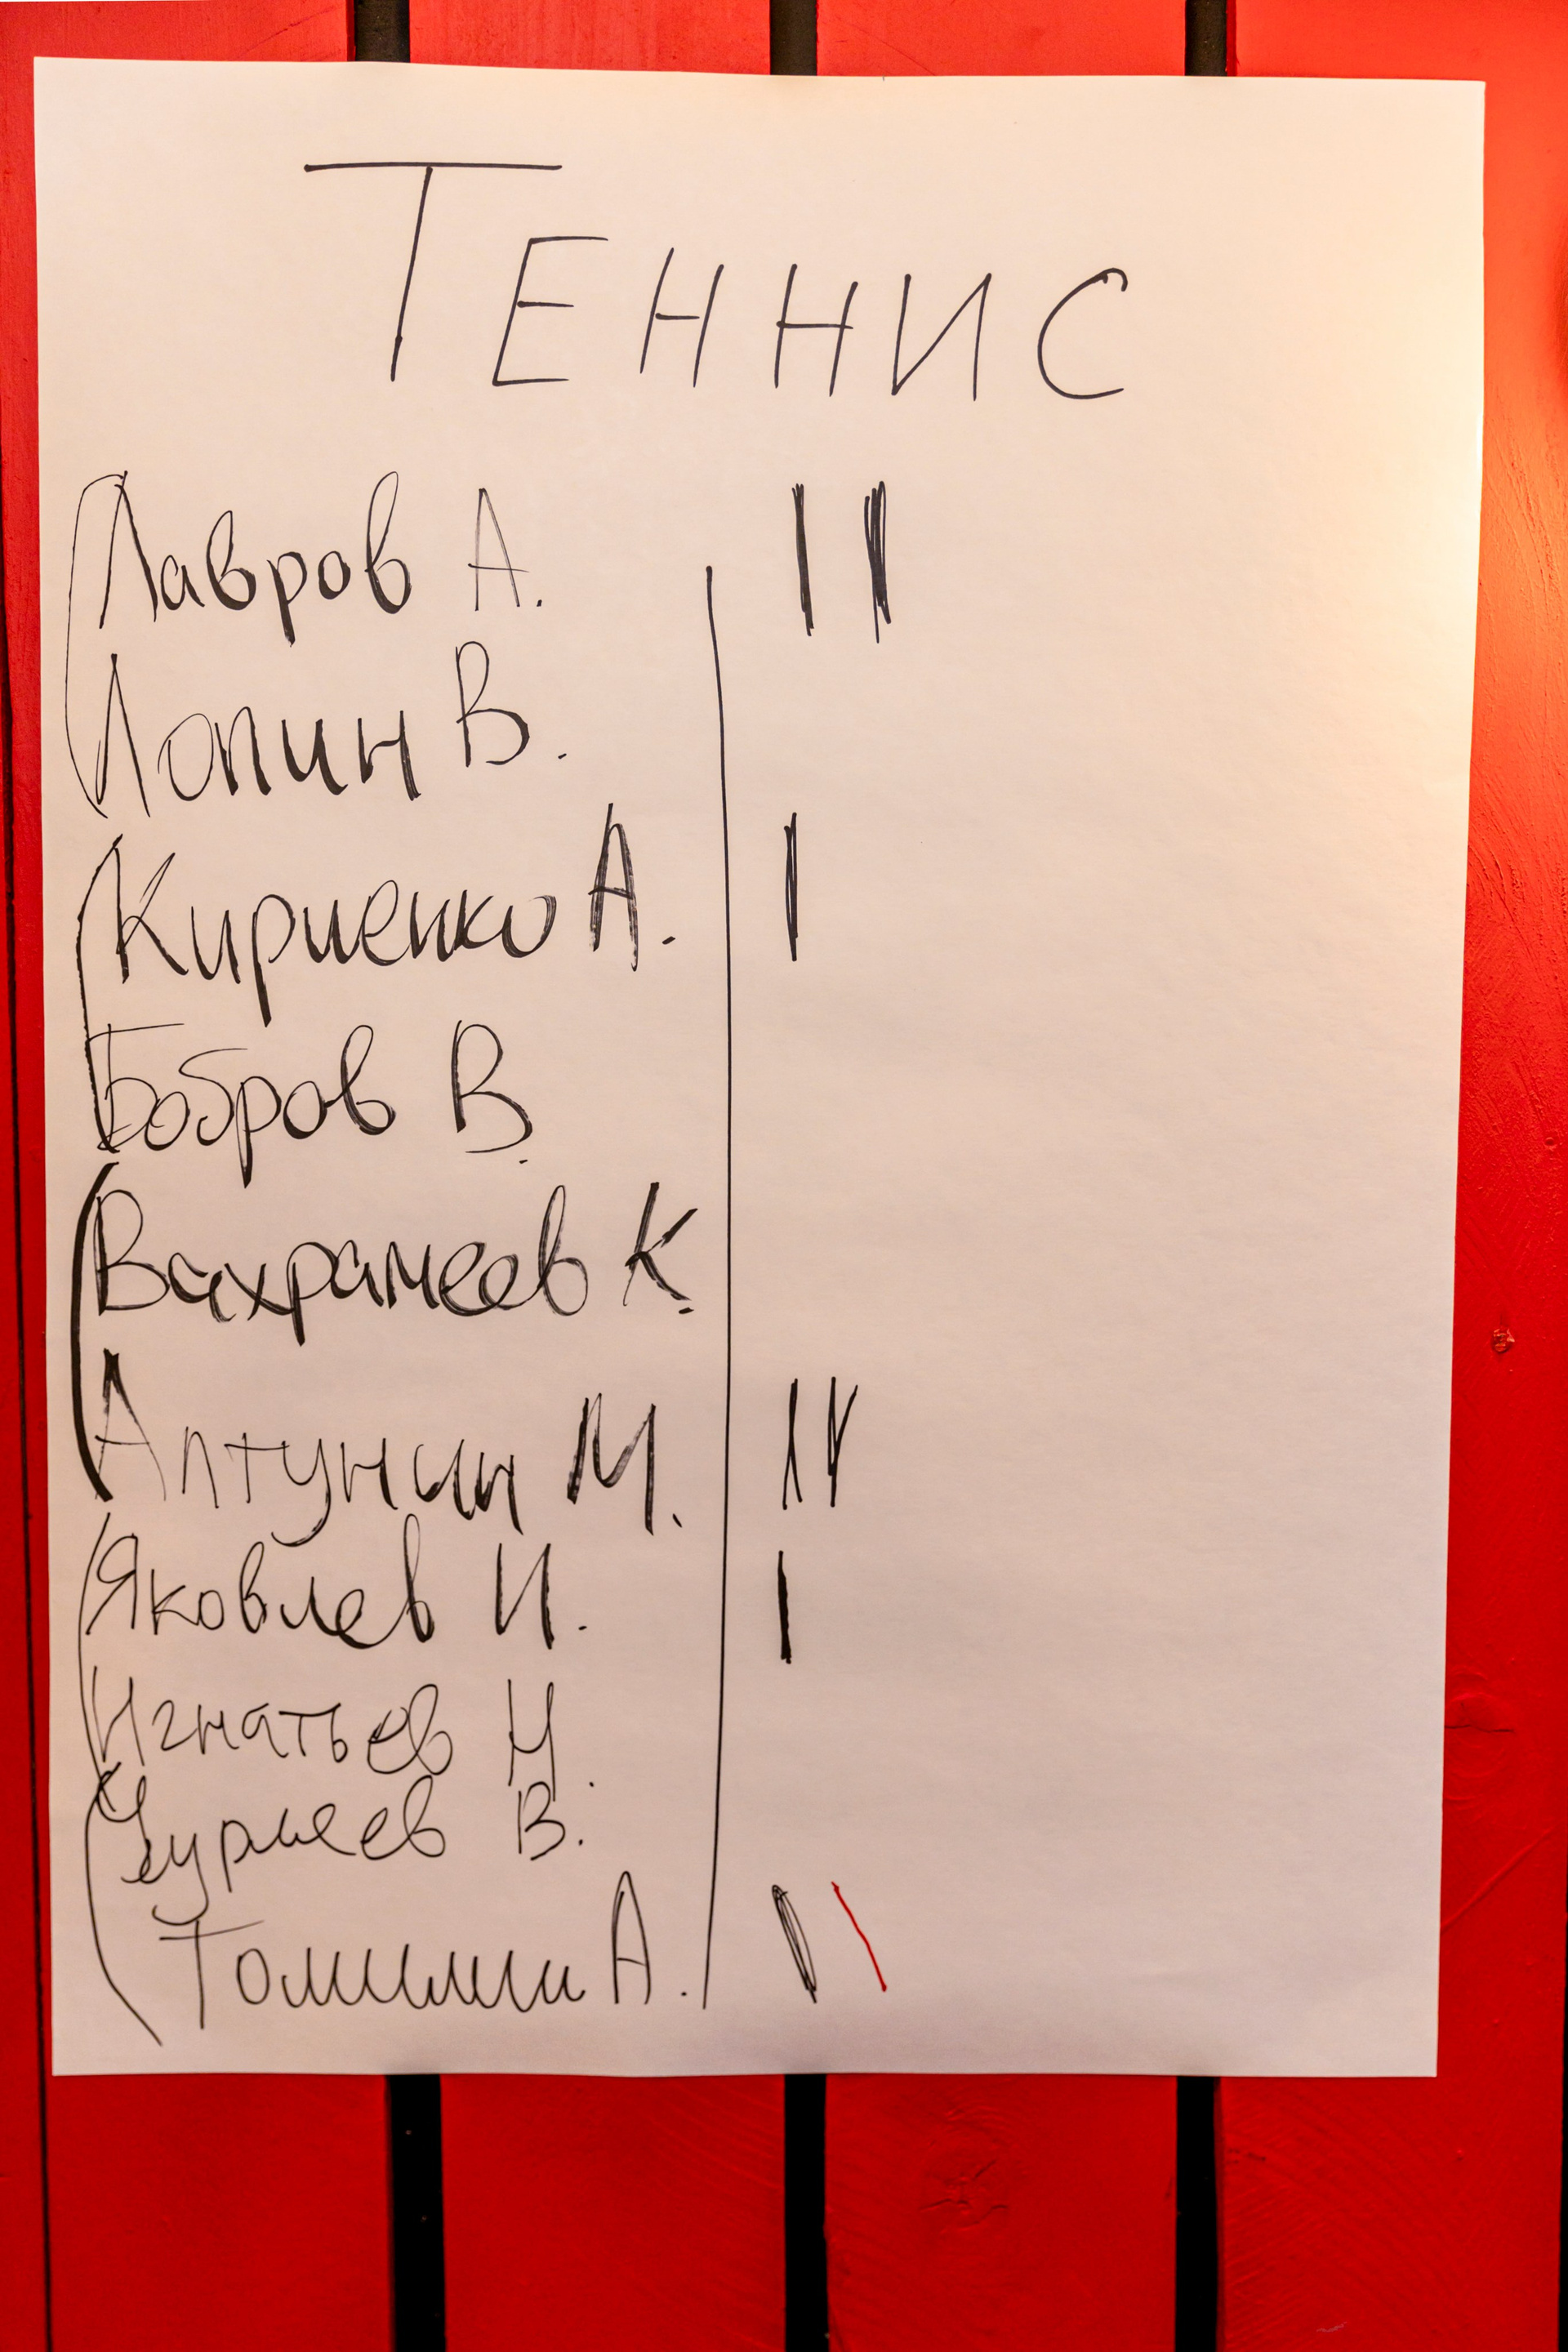 Теннис
Лавров А. II
Лопин В.
Кириенко А. I
Бобров В.
Вахрамеев К.
Аптунин М. II
Яковлев И. I
Игнатьев Н.
В.
А. II